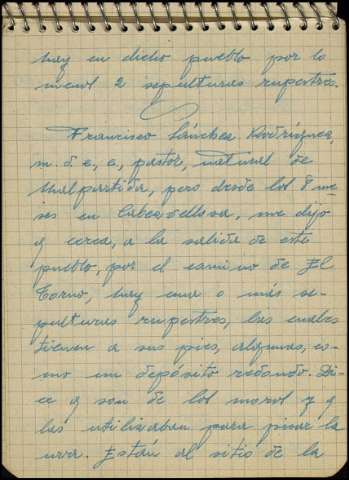 hay en dicho pueblo por lo
menos 2 sepulturas rupestres.
Francisco Sánchez Rodríguez,
m. d. e, e, pastor, natural de
Malpartida, pero desde los 8 me-
ses en Cabezabellosa, me dijo
q cerca, a la salida de este
pueblo, por el camino de El
Torno, hay una o más se-
pulturas rupestres, las cuales
tienen a sus pies, algunas, co-
mo un depósito redondo. Di-
ce q son de los moros y q
las utilizaban para pisar la
uva. Están al sitio de la